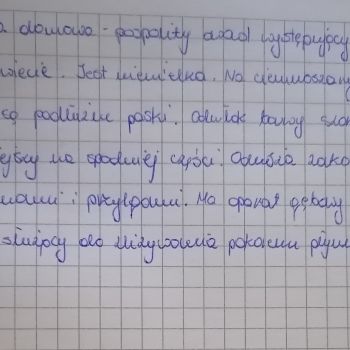 a domowa - pospolity owad występujący
świecie. Jest niewielka. Na ciemnoszarym
są podłużne paski. Odwłok barwy szar
ejszy na spodniej części. Odnóża zako
kami i przylgami. Ma aparat gębowy
służący do zlizywania pokarmu płyn